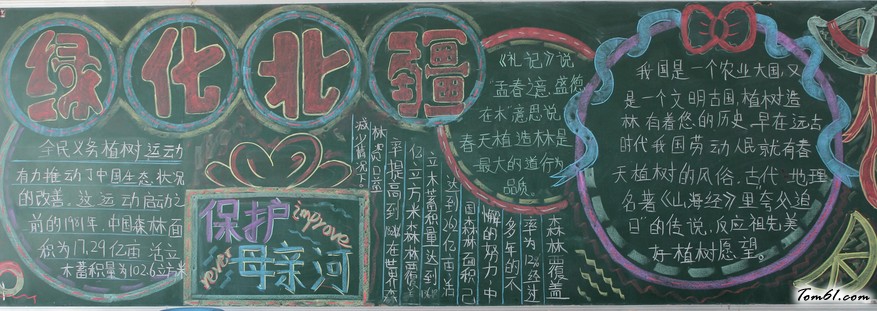 绿化北疆
全民义务植树运动
有力推动了中国生态状况
的改善。这运动启动之
前的1981年,中国森林面
积为17.29亿亩活立
木蓄积量为102.6立方米
保护
improve
母亲河
river
森林覆盖
率为12%经过
多年的不
懈的努力中
国森林面积已
达到262亿亩活
立木蓄积量达到
亿立方米森林覆
率提高到
在世界森
林资
《礼记》说,
“孟春之意,盛德
在木”意思说
春天植造林是
最大的道行为
品质。
我国是一个农业大国,又
是一个文明古国,植树造
林有着悠的历史,早在远古
时代我国劳动人民就有春
天植树的风俗,古代地理
名著《山海经》里“夸父追
日”的传说,反应祖先美
好植树愿望。
Tom61.com